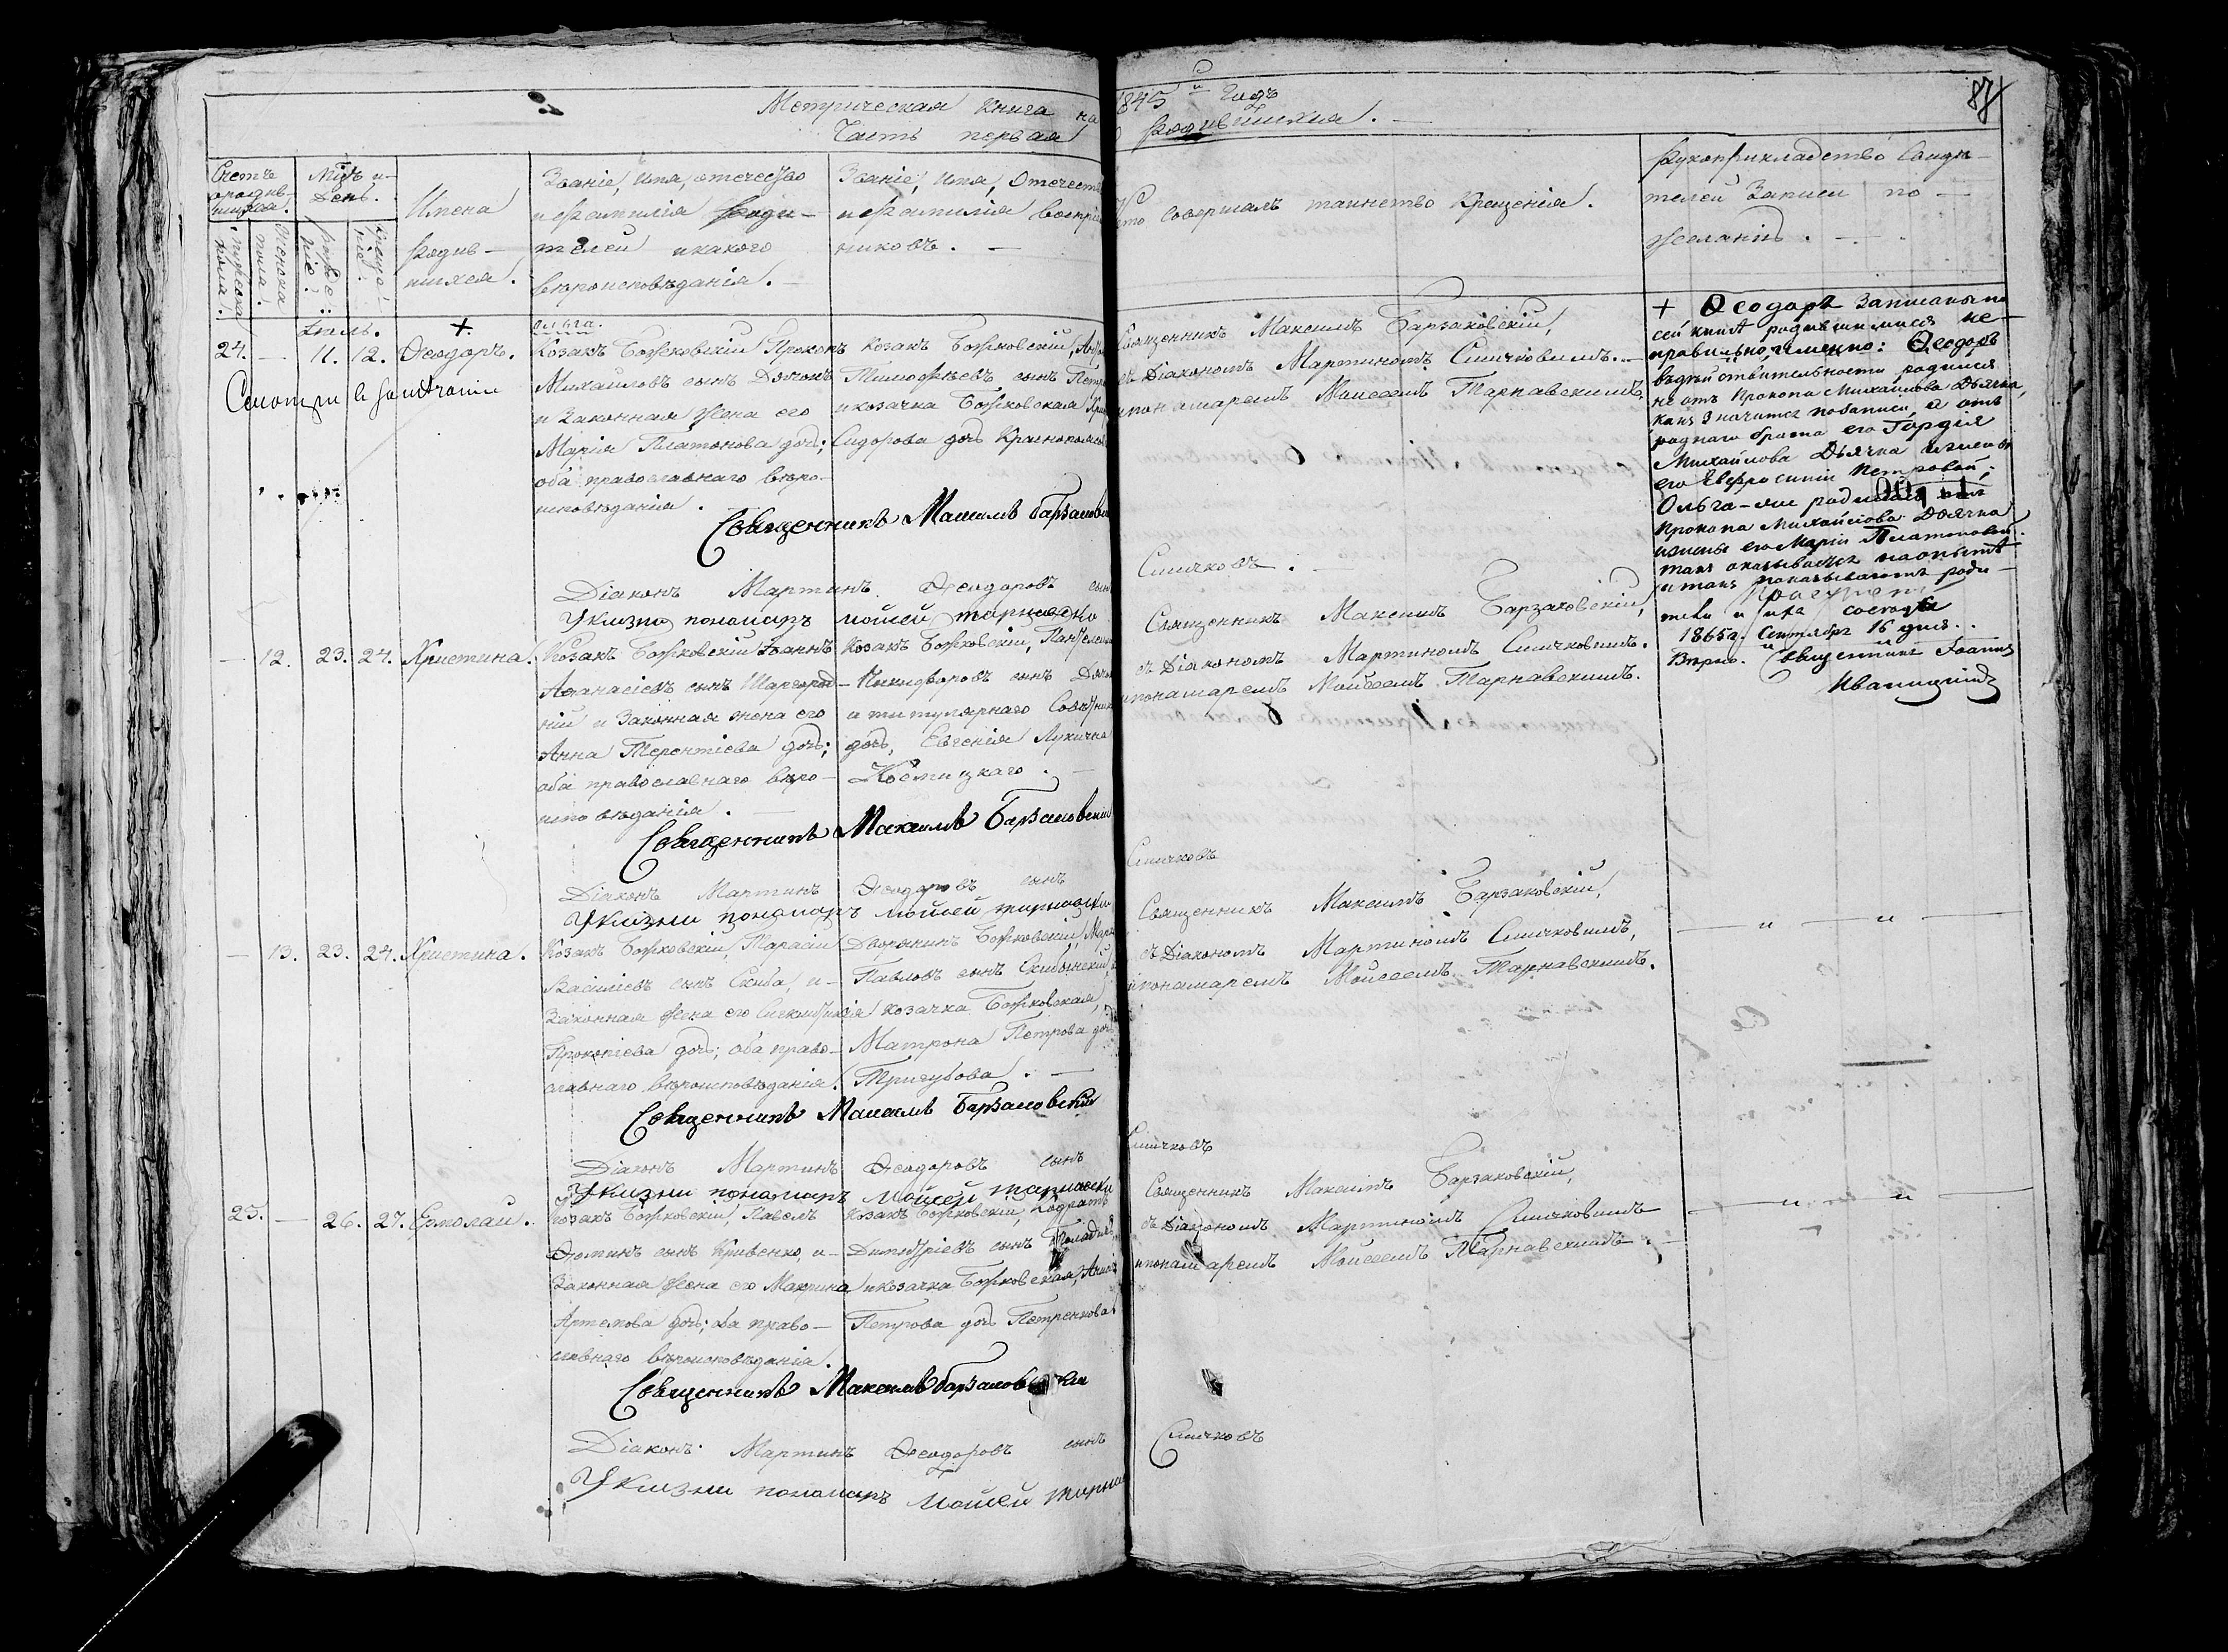 Метрическая книга на
Часть первая
1845 й Годъ
о Родившихся.
87
Счетъ
родив-
шихся.
Мужеска
пола.
Женска
пола.
Мѣс. и
День.
Рожде-
нія.
Креще-
нія.
Имена
Родив-
шихся.
Званіе, имя, отечество
и Фамилія Роди-
телей и какого
вѣроисповѣданія.
Званіе, имя, Отечест
и Фамилія воспрі
никовъ.
Кто совершалъ таинство Крещенія.
Рукоприкладство Свидѣ-
телей Записи по
желанію.
Іюль.
24. — 11. 12. Ѳеодоръ.
Смотри в замѣчаніи
ольга.
Козакъ Божковскій Прокопъ
Михайловъ сынъ Дьячокъ
и Законная жена его
Марія Платонова дочь;
оба православнаго вѣро-
исповѣданія.
козакъ Божковскій,
Тимофѣевъ сынъ
и козачка Божковская
Сидорова дочь
Священникъ Максимъ Барзаковскій,
съ Діакономъ Мартиномъ Смичковимъ.
и понамаремъ Моисеемъ Тарнавскимъ.
+ Ѳеодоръ записанъ по
сей книгѣ родившимися не-
правильно, именно: Ѳеодоръ
въ дѣйствительности родился
не отъ Прокопа Михайлова Дьячка,
какъ значится по записи, а отъ
роднаго брата его Гордія
Михайлова Дьячка и жены
его Евфросиніи Петровой;
Ольга-же родилась отъ
Прокопа Михайлова Дьячка
и жены его Маріи Платоновой.
такъ оказывается на опытѣ
и такъ показываютъ роди-
тели и ихъ сосѣди
1865 г. Сентября 16 дня.
Вѣрно. Священникъ Іоаннъ
Иваницкій
Священникъ Максимъ Барзаковскій
Діаконъ Мартинъ Ѳеодоровъ сынъ
Смичковъ.
Указни понамаръ Мойсей тарнавскій
— 12. 23. 24. Христина.
Козакъ Божковскій Іоаннъ
Аѳанасіевъ сынъ
и Законная жена его
Анна Терентіева дочь;
оба православнаго вѣро-
исповѣданія.
козакъ Божковскій,
Никифоровъ сынъ
и титулярнаго Совѣтника
дочь, Евгенія Лукична
Священникъ Максимъ Барзаковскій,
съ Діакономъ Мартиномъ Смичковимъ.
и понамаремъ Моисеемъ Тарнавскимъ.
Священникъ Максимъ Барзаковскій
Діаконъ Мартинъ Ѳеодоровъ сынъ
Смичковъ
Указни понамаръ Мойсей тарнавскій
— 13. 23. 24. Христина.
Козакъ Божковскій, Тарасій
Василіевъ сынъ Скиба, и
Законная жена его
Прокопіева дочь; оба право-
славнаго вѣроисповѣданія.
Дворянинъ Божковскій,
Павловъ сынъ
козачка Божковская,
Матрона Петрова дочь
Тригубова.
Священникъ Максимъ Барзаковскій,
съ Діакономъ Мартиномъ Смичковимъ,
и понамаремъ Моисеемъ Тарнавскимъ.
— „ — „ —
Священникъ Максимъ Барзаковскій
Діаконъ Мартинъ Ѳеодоровъ сынъ
Смичковъ
Указни понамаръ Мойсей тарнавскій
25. — 26. 27. Ермолай.
Козакъ Божковскій, Павелъ
Ѳоминъ сынъ Кривенко, и
Законная жена его Макрина
Артемова дочь; оба право-
славнаго вѣроисповѣданія.
козакъ Божковскій, Кодратъ
Димитріевъ сынъ
и козачка Божковская,
Петрова дочь Петренкова
Священникъ Максимъ Барзаковскій,
съ Діакономъ Мартиномъ Смичковимъ
и понамаремъ Моисеемъ Тарнавскимъ.
— „ — „ —
Священникъ Максимъ Барзаковскій
Діаконъ Мартинъ Ѳеодоровъ сынъ
Смичковъ
Указни понамаръ Мойсей тарнав